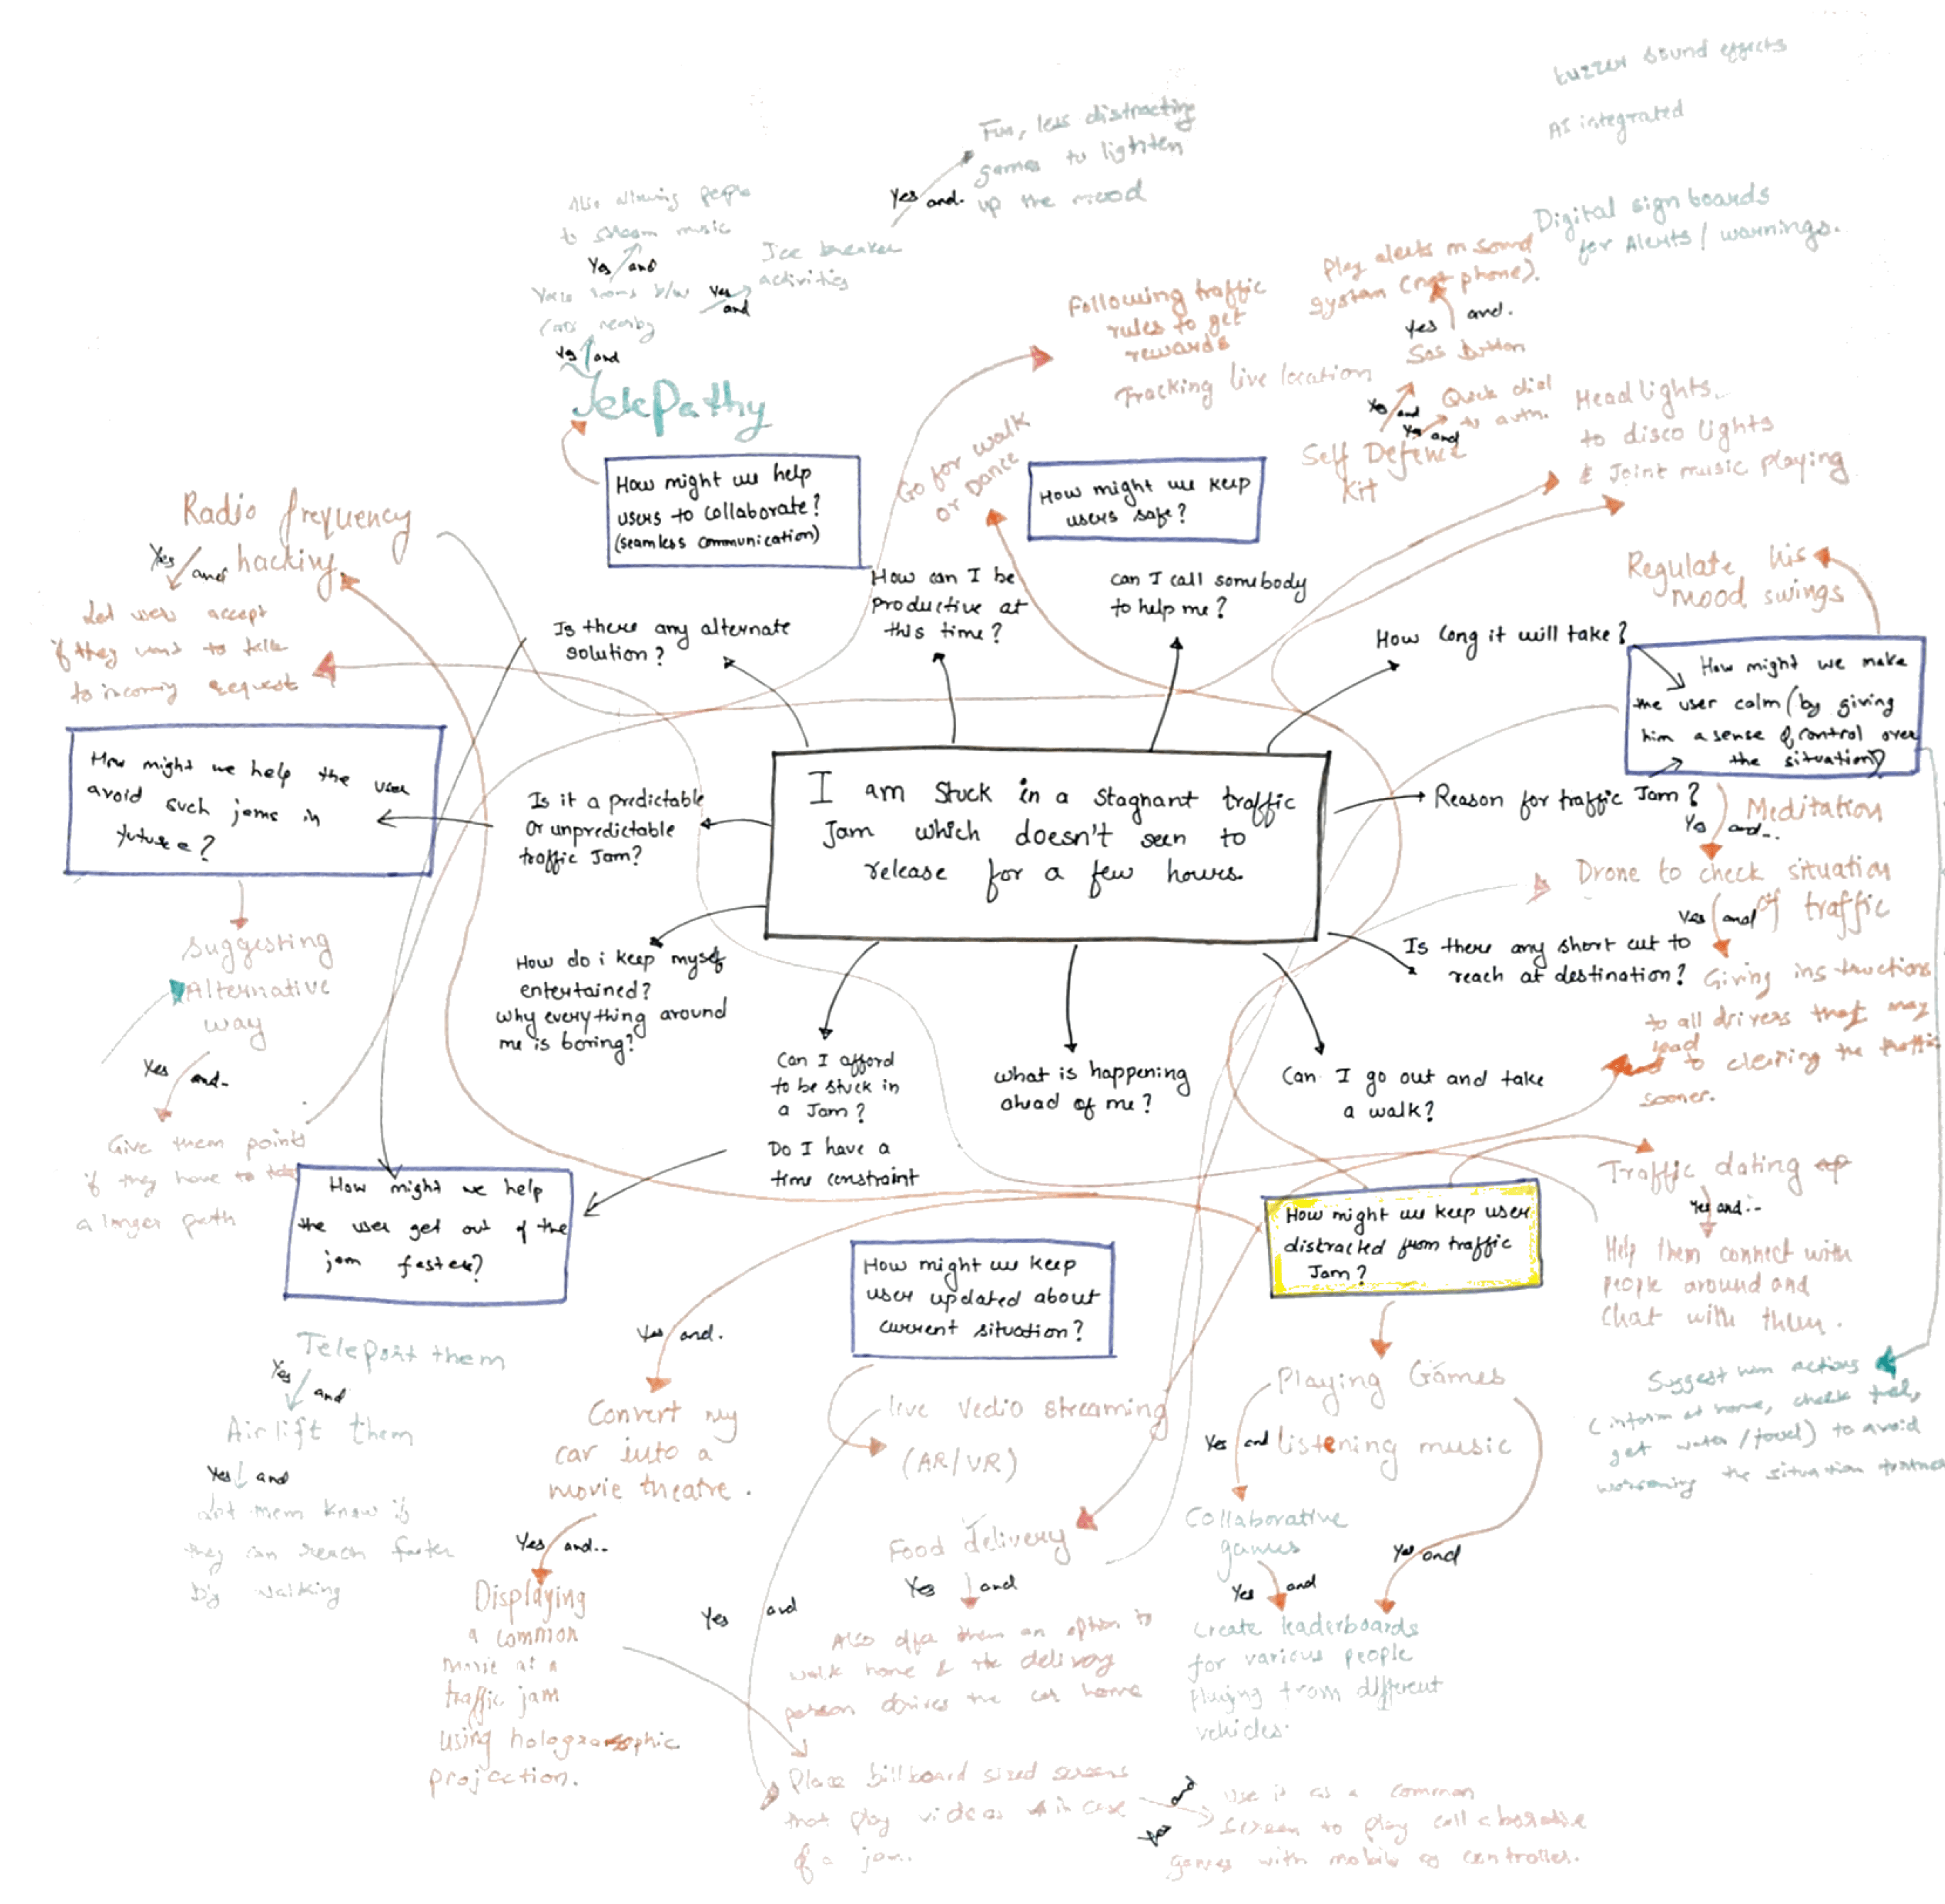 buzzer sound effects
AI integrated
Digital sign boards
for Alerts / warnings.
Fun, less distracting
games to lighten
up the mood
Yes and.
Also allowing people
to stream music
Yes and
Ice breaker
activities
Yes and
Voice rooms b/w
cars nearby
Yes and
TelePathy
How might we help
users to collaborate?
(seamless communication)
Following traffic
rules to get
rewards
Tracking live location
Go for walk
or Dance
Play alerts in sound
system (not phone).
Yes and.
SOS button
Quick dial
to auth.
Yes and
Yes and
Self Defence
Kit
How might we keep
users safe?
Head lights
to disco lights
& Joint music playing
Radio frequency
hacking
Yes and
Let user accept
if they want to talk
to incoming request
Regulate his
mood swings
How might we make
the user calm (by giving
him a sense of control over
the situation)?
How can I be
productive at
this time?
Can I call somebody
to help me?
Is there any alternate
solution?
How long it will take?
How might we help the user
avoid such jams in
future?
Is it a predictable
Or unpredictable
traffic Jam?
I am stuck in a stagnant traffic
Jam which doesn't seen to
release for a few hours.
Reason for traffic Jam?
Meditation
Yes and..
Drone to check situation
of traffic
Yes and
Is there any short cut to
reach at destination?
Giving instructions
to all drivers that may
lead to clearing the traffic
sooner.
Suggesting
Alternative
way
Yes and..
Give them points
if they have to
a longer path
How do i keep myself
entertained?
Why everything around
me is boring?
Can I afford
to be stuck in
a Jam?
Do I have a
time constraint
What is happening
ahead of me?
Can I go out and take
a walk?
How might we help
the user get out of the
jam faster?
How might we keep
user updated about
current situation?
How might we keep user
distracted from traffic
Jam?
Traffic dating
Yes and..
Help them connect with
people around and
chat with them.
Suggest him actions
(inform at home, check fuel,
get water / food) to avoid
worsening the situation
Teleport them
Yes and
Airlift them
Yes and
Let them know if
they can reach faster
by walking
Yes and.
Convert my
car into a
movie theatre.
Yes and..
Displaying
a common
movie at a
traffic jam
using holographic
projection.
live vedio streaming
(AR/VR)
Yes and
Food delivery
Yes and
Also offer them an option to
walk home & the delivery
person drives the car home
Playing Games
listening music
Yes and
Collaborative
games
Yes and
Yes and
Create leaderboards
for various people
playing from different
vehicles.
Place billboard sized screens
that play videos in case
of a jam..
Yes and
Use it as a common
screen to play collaborative
games with mobile as controller.